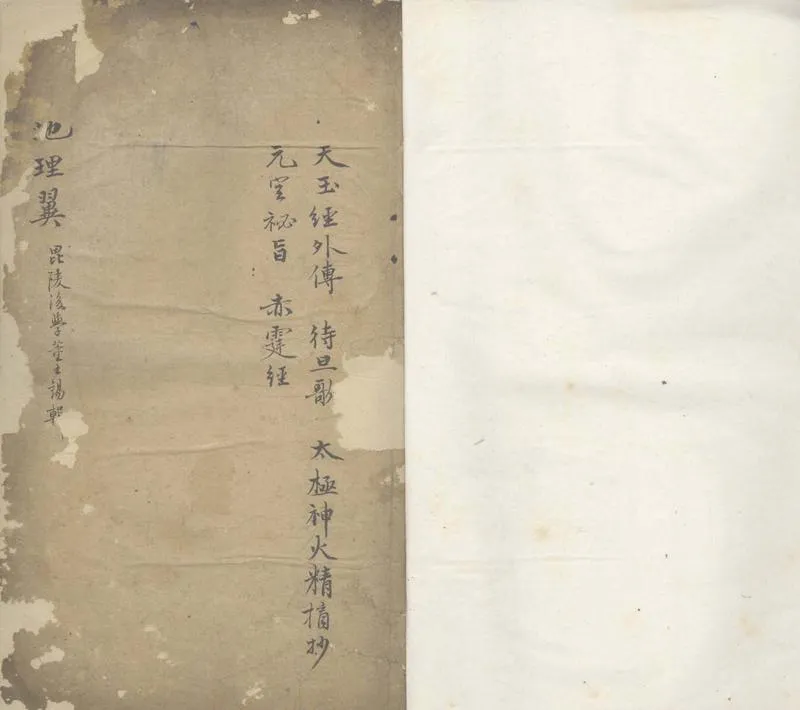 天玉經外傳 待旦歌 太極神火精摘抄
元空祕旨 赤霆經
地理翼 毘陵後學董士錫輯